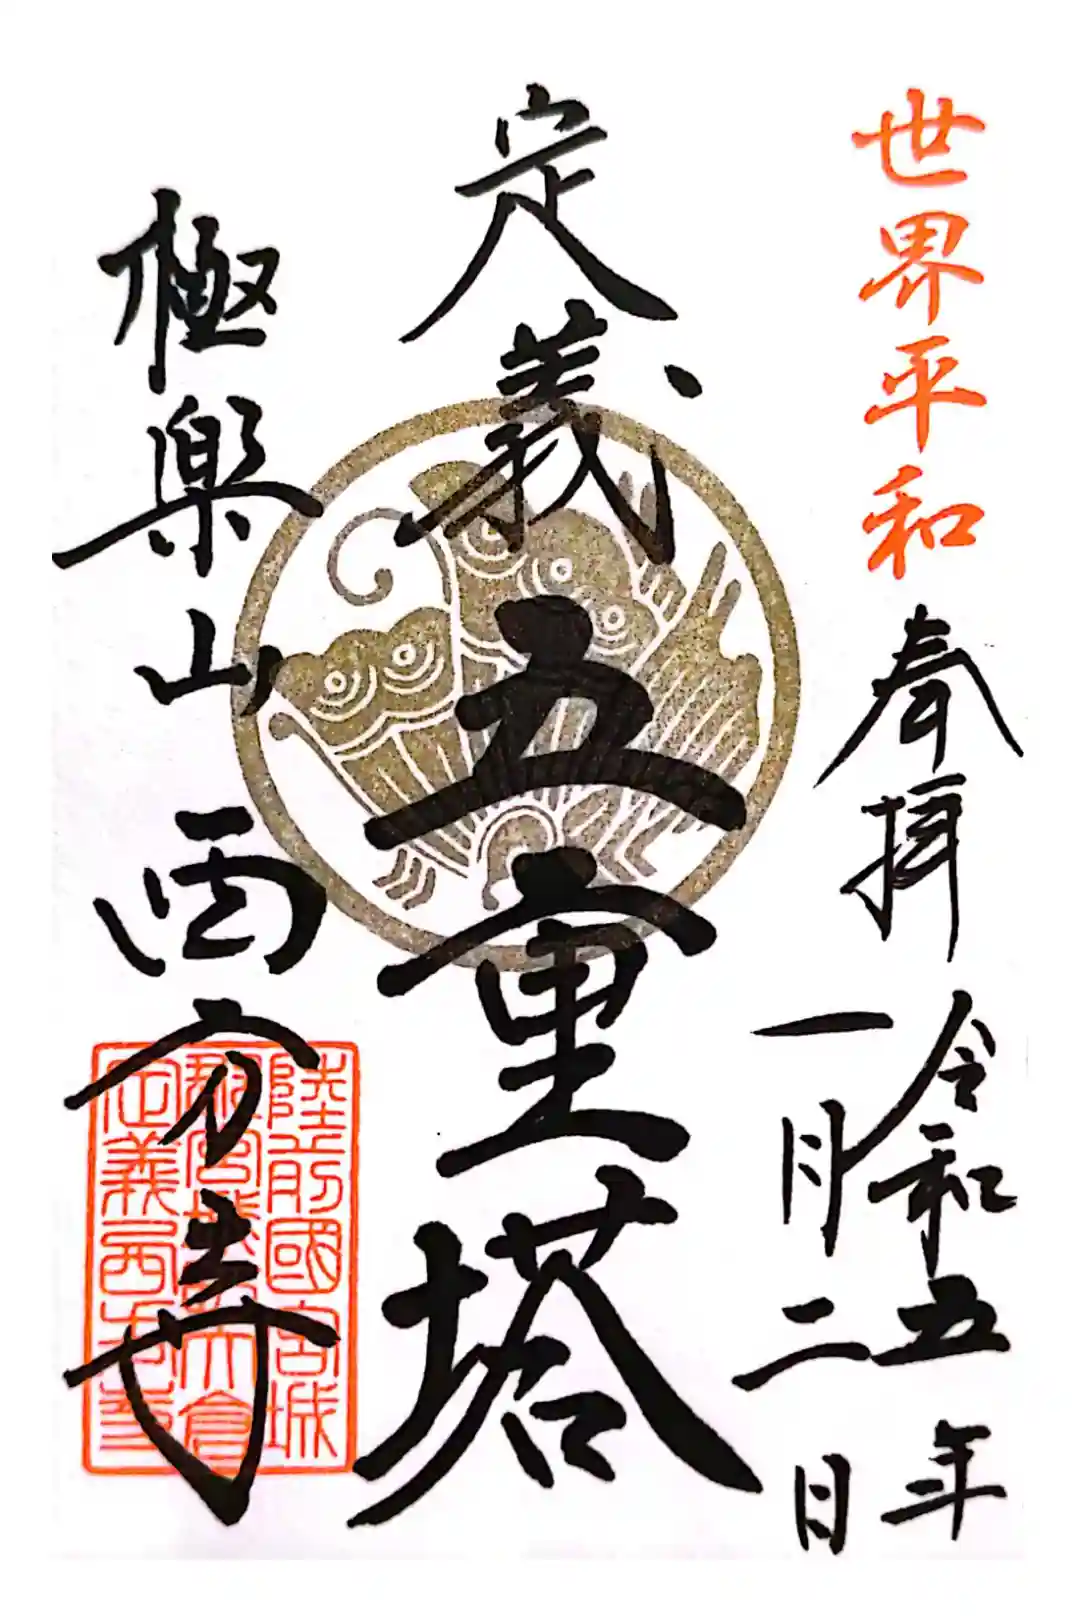 世界平和
奉拝 令和五年
一月二日
定義 五重塔
極楽山 西方寺
陸前國宮城
郡宮城大倉
定義西方寺